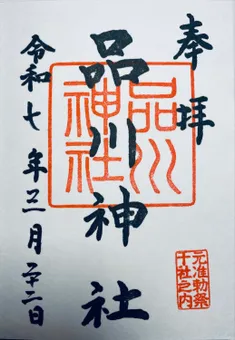 奉拝
品川神社
品川
神社
令和七年三月二十二日
元准勅祭
十社之内